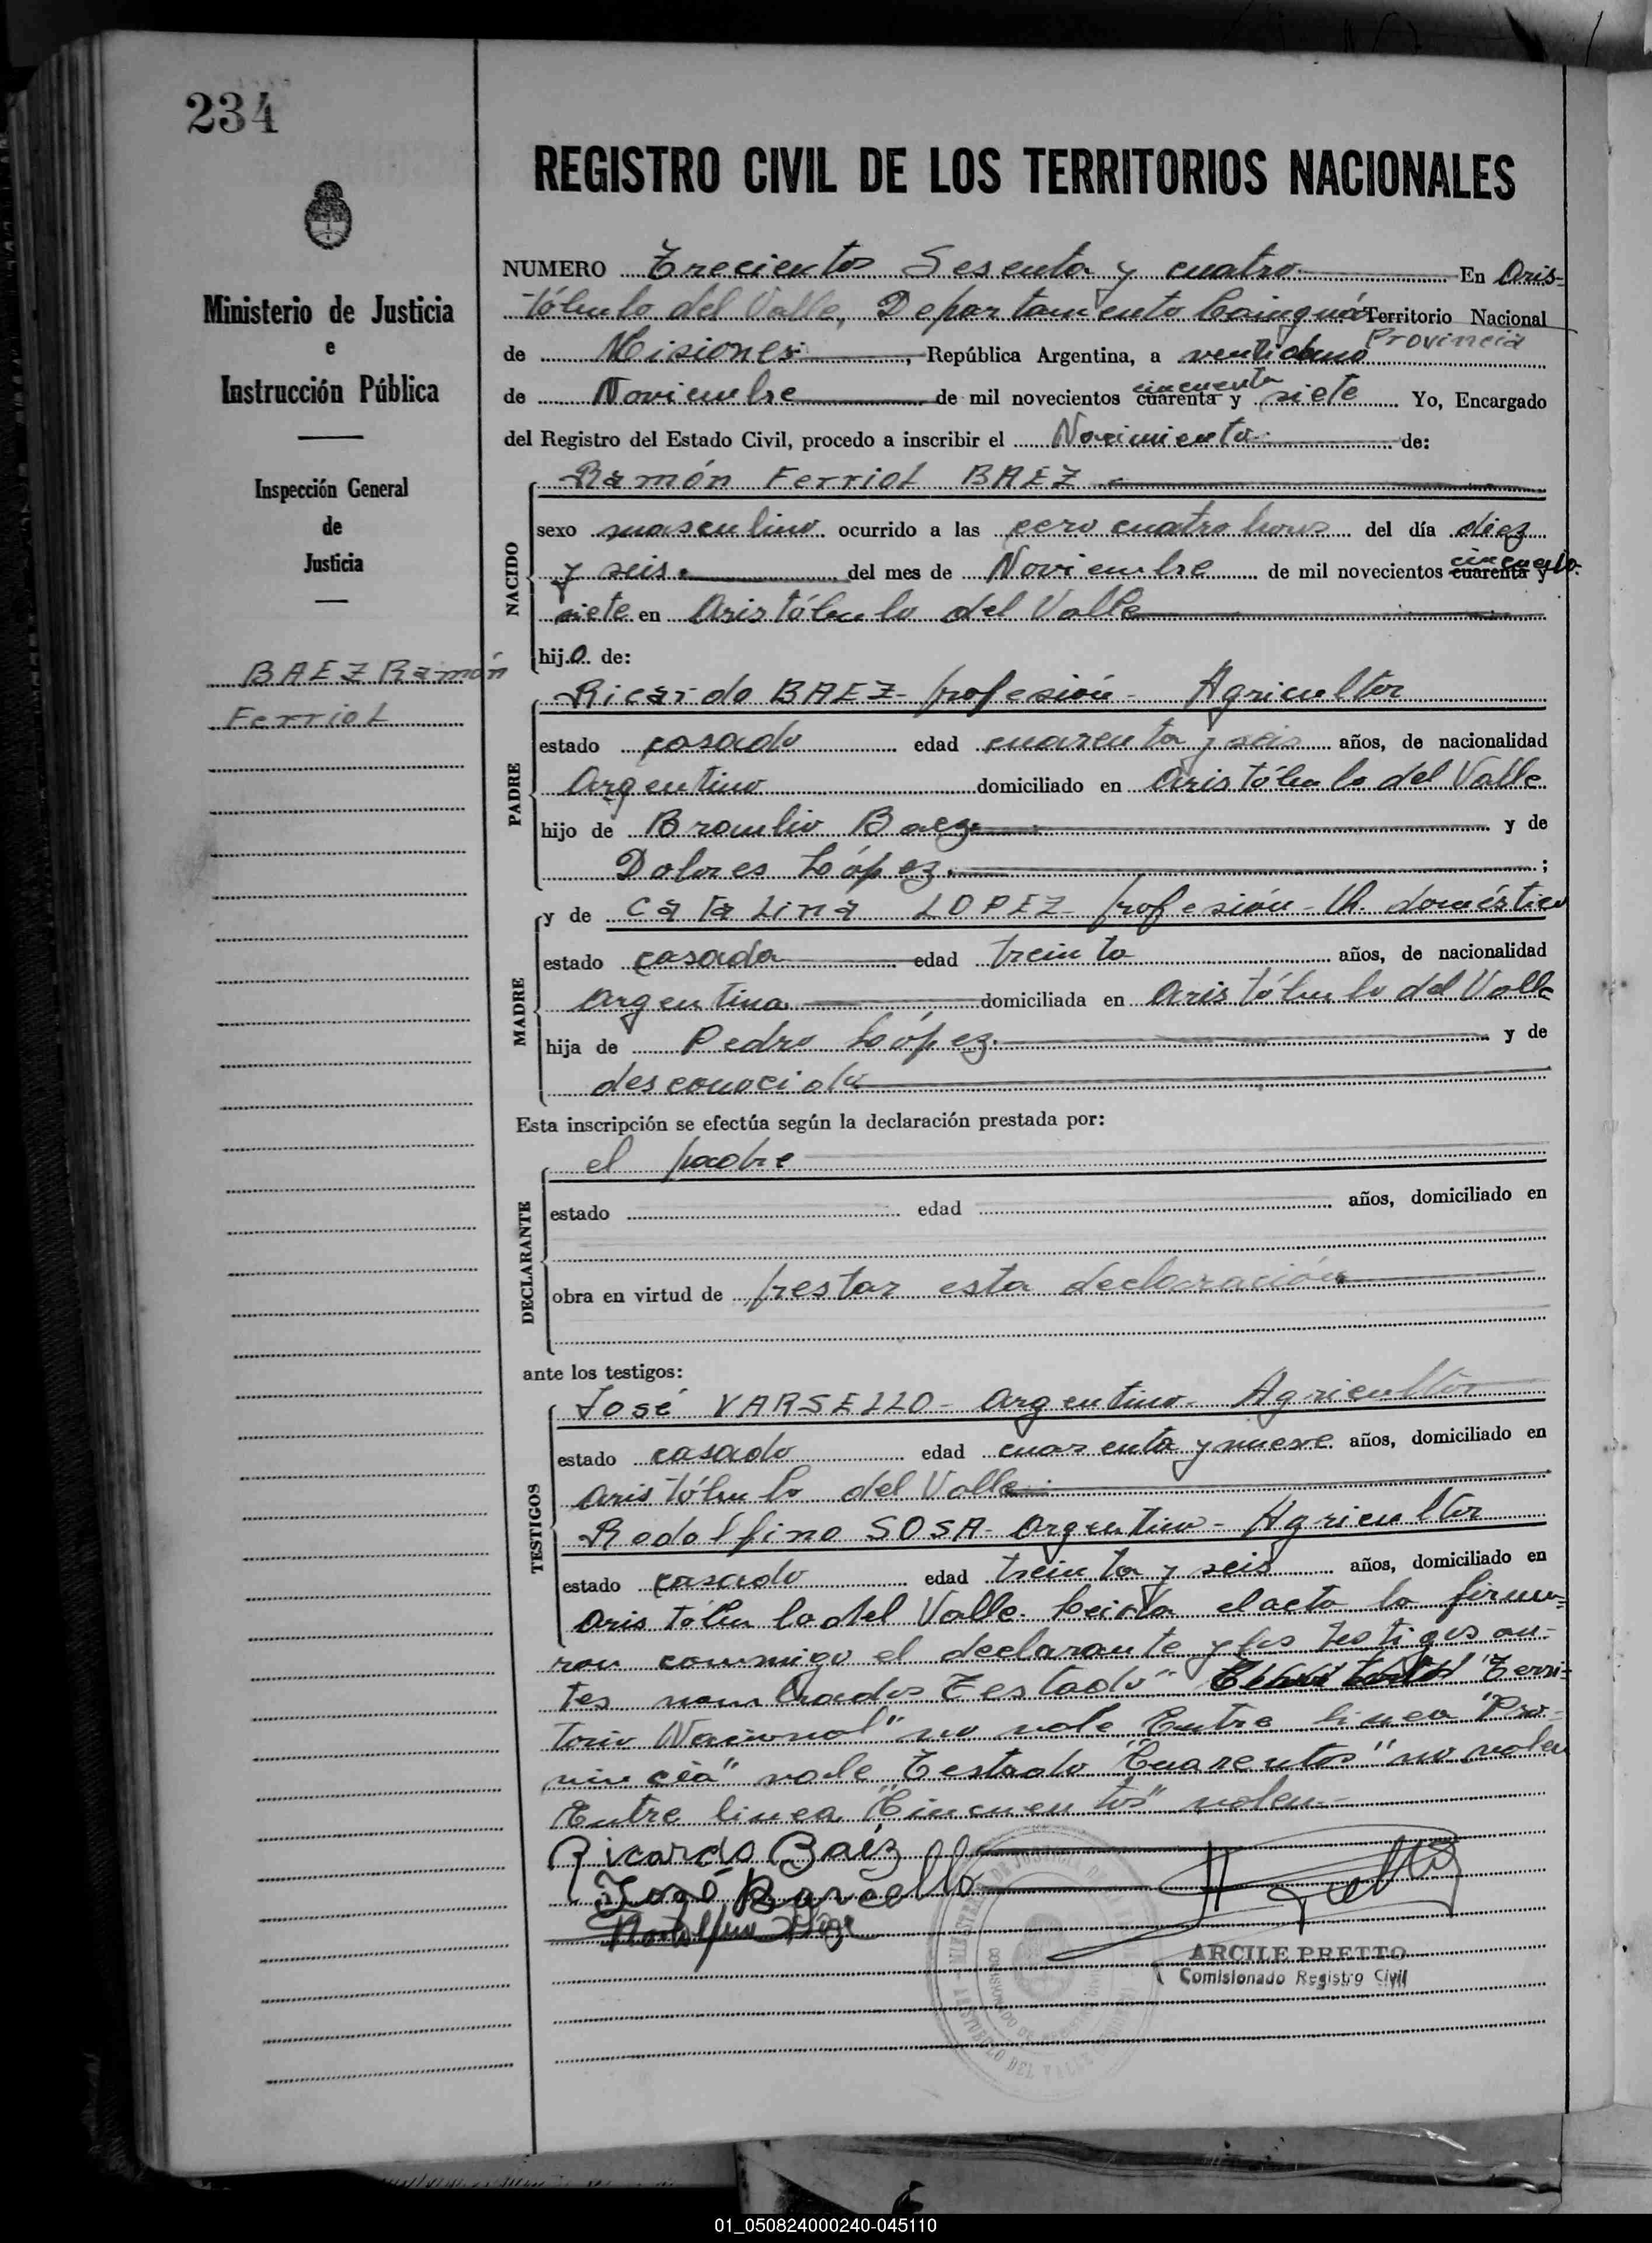 234
REGISTRO CIVIL DE LOS TERRITORIOS NACIONALES
Ministerio de Justicia
e
Instrucción Pública
Inspección General
de
Justicia
BAEZ Ramón
Ferriol
NUMERO Trecientos Sesenta y cuatro En Aris-
tóbulo del Valle, Departamento Cainguás Territorio Nacional
Provincia
de Misiones, República Argentina, a
cincuenta
de Noviembre de mil novecientos cuarenta y siete Yo, Encargado
del Registro del Estado Civil, procedo a inscribir el Nacimiento de:
NACIDO
Ramón Ferriol BAEZ
sexo masculino ocurrido a las cero cuatro horas del día diez
y seis del mes de Noviembre de mil novecientos cuarenta y
siete en Aristóbulo del Valle
hijo de:
PADRE
Ricardo BAEZ - profesión - Agricultor
estado casado edad cuarenta y seis años, de nacionalidad
Argentino domiciliado en Aristóbulo del Valle
hijo de Baez y de
Dolores López ;
MADRE
y de Catalina LOPEZ - profesión - Q. doméstico
estado casada edad treinta años, de nacionalidad
Argentina domiciliada en Aristóbulo del Valle
hija de Pedro López y de
desconocida
Esta inscripción se efectúa según la declaración prestada por:
DECLARANTE
el padre
estado edad años, domiciliado en
obra en virtud de prestar esta declaración
ante los testigos:
TESTIGOS
José VARSELLO - Argentino - Agricultor
estado casado edad cuarenta y nueve años, domiciliado en
Aristóbulo del Valle
Rodolfino SOSA - Argentino - Agricultor
estado casado edad treinta y seis años, domiciliado en
Aristóbulo del Valle. Leida el acta la firma-
ron conmigo el declarante y los testigos an-
tes nombrados Testado "Terri-
torio Nacional" no vale Entre linea "Pro-
vincia" vale Testado "Cuarentas" no valen
Entre linea "Cincuentas" valen
Ricardo Baéz
José Barcello
ARCILE PRETTO
Comisionado Registro Civil
01_050824000240-045110